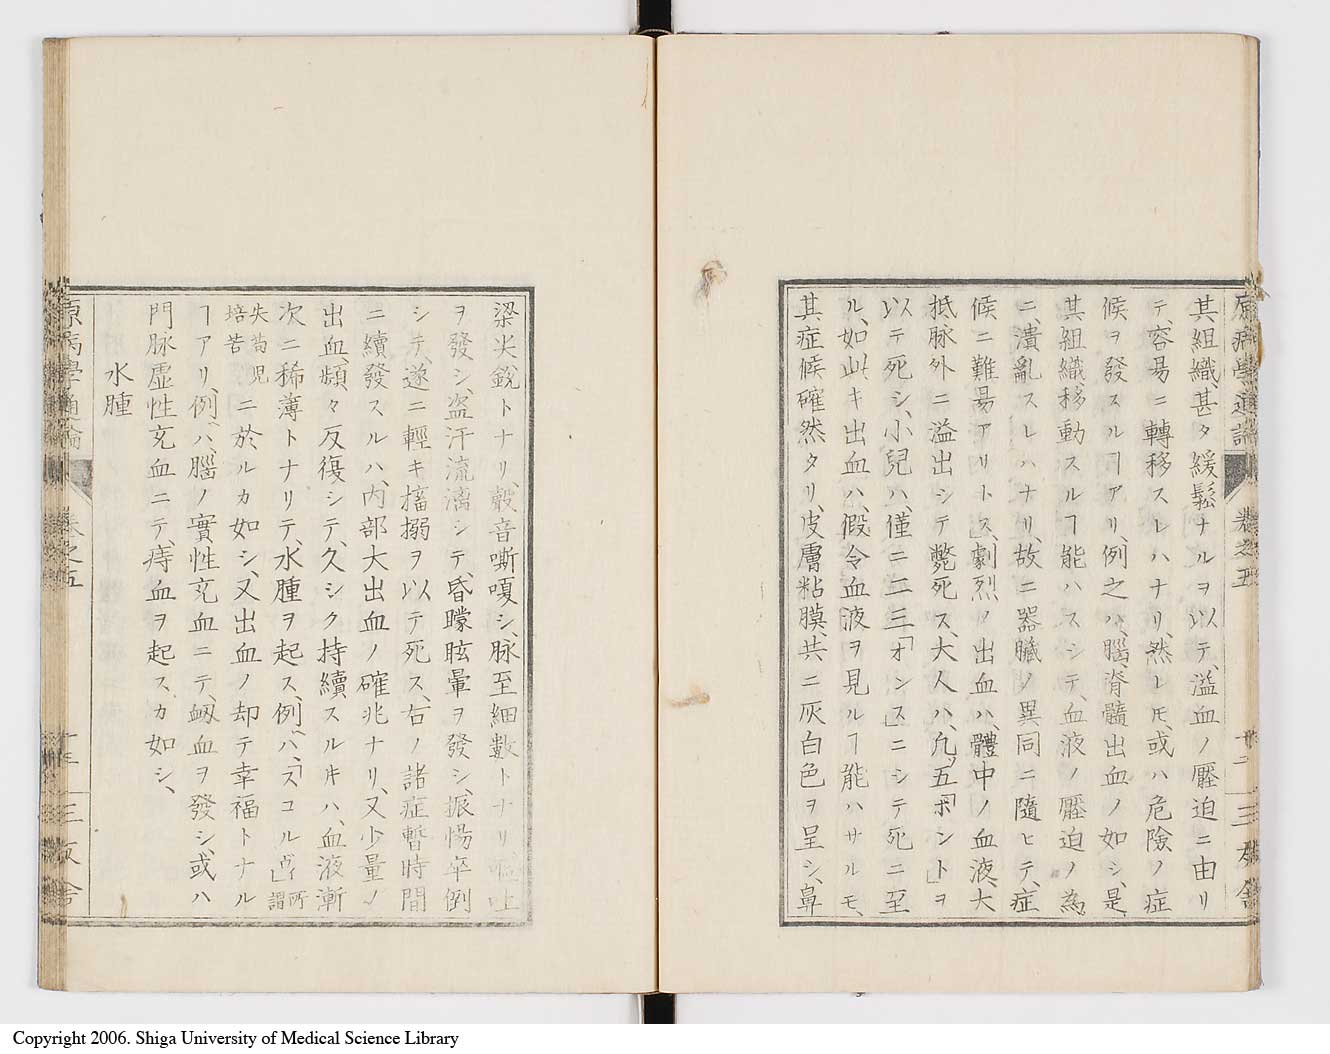 原病學通論 卷之五 三友舍
其組織甚タ緩鬆ナルヲ以テ、溢血ノ壓迫ニ由リ
テ、容昜ニ轉移スレハナリ、然レ𪜈、或ハ危險ノ症
候ヲ發スルヿアリ、例之ハ、腦、脊髓出血ノ如シ、是
其組織、移動スルヿ能ハスシテ、血液ノ壓迫ノ為
ニ、潰亂スレハナリ、故ニ器臓ノ異同ニ隨ヒテ、症
候ニ難昜アリトス、劇烈ノ出血ハ、體中ノ血液、大
抵脉外ニ溢出シテ斃死ス、大人ハ、凢ソ五「ポンド」ヲ
以テ死シ、小兒ハ、僅ニ二三「オンス」ニシテ死ニ至
ル、如此キ出血ハ、假令血液ヲ見ルヿ能ハサルモ、
其症候確然タリ、皮膚粘膜、共ニ灰白色ヲ呈シ、鼻
梁尖銳トナリ、聲音嘶嗄シ、脉至細數トナリ、嘔吐
ヲ發シ、盗汗流漓シテ、昏矇眩暈ヲ發シ、振慯卒倒
シテ、遂ニ輕キ搐搦ヲ以テ死ス、右ノ諸症暫時間
ニ續發スルハ、內部大出血ノ確兆ナリ、又少量ノ
出血、頻々反復シテ、久シク持續スルキハ、血液漸
次ニ稀薄トナリテ、水腫ヲ起ス、例ヘハ、「スコルヴイ」所謂
失苟兒培苦ニ於ルカ如シ、又出血ノ却テ幸福トナル
ヿアリ、例ヘハ、腦ノ實性充血ニテ、衂血ヲ發シ、或ハ
門脉虛性充血ニテ、痔血ヲ起スカ如シ、
水腫
原病學通論 卷之五 三友舍
Copyright 2006. Shiga University of Medical Science Library